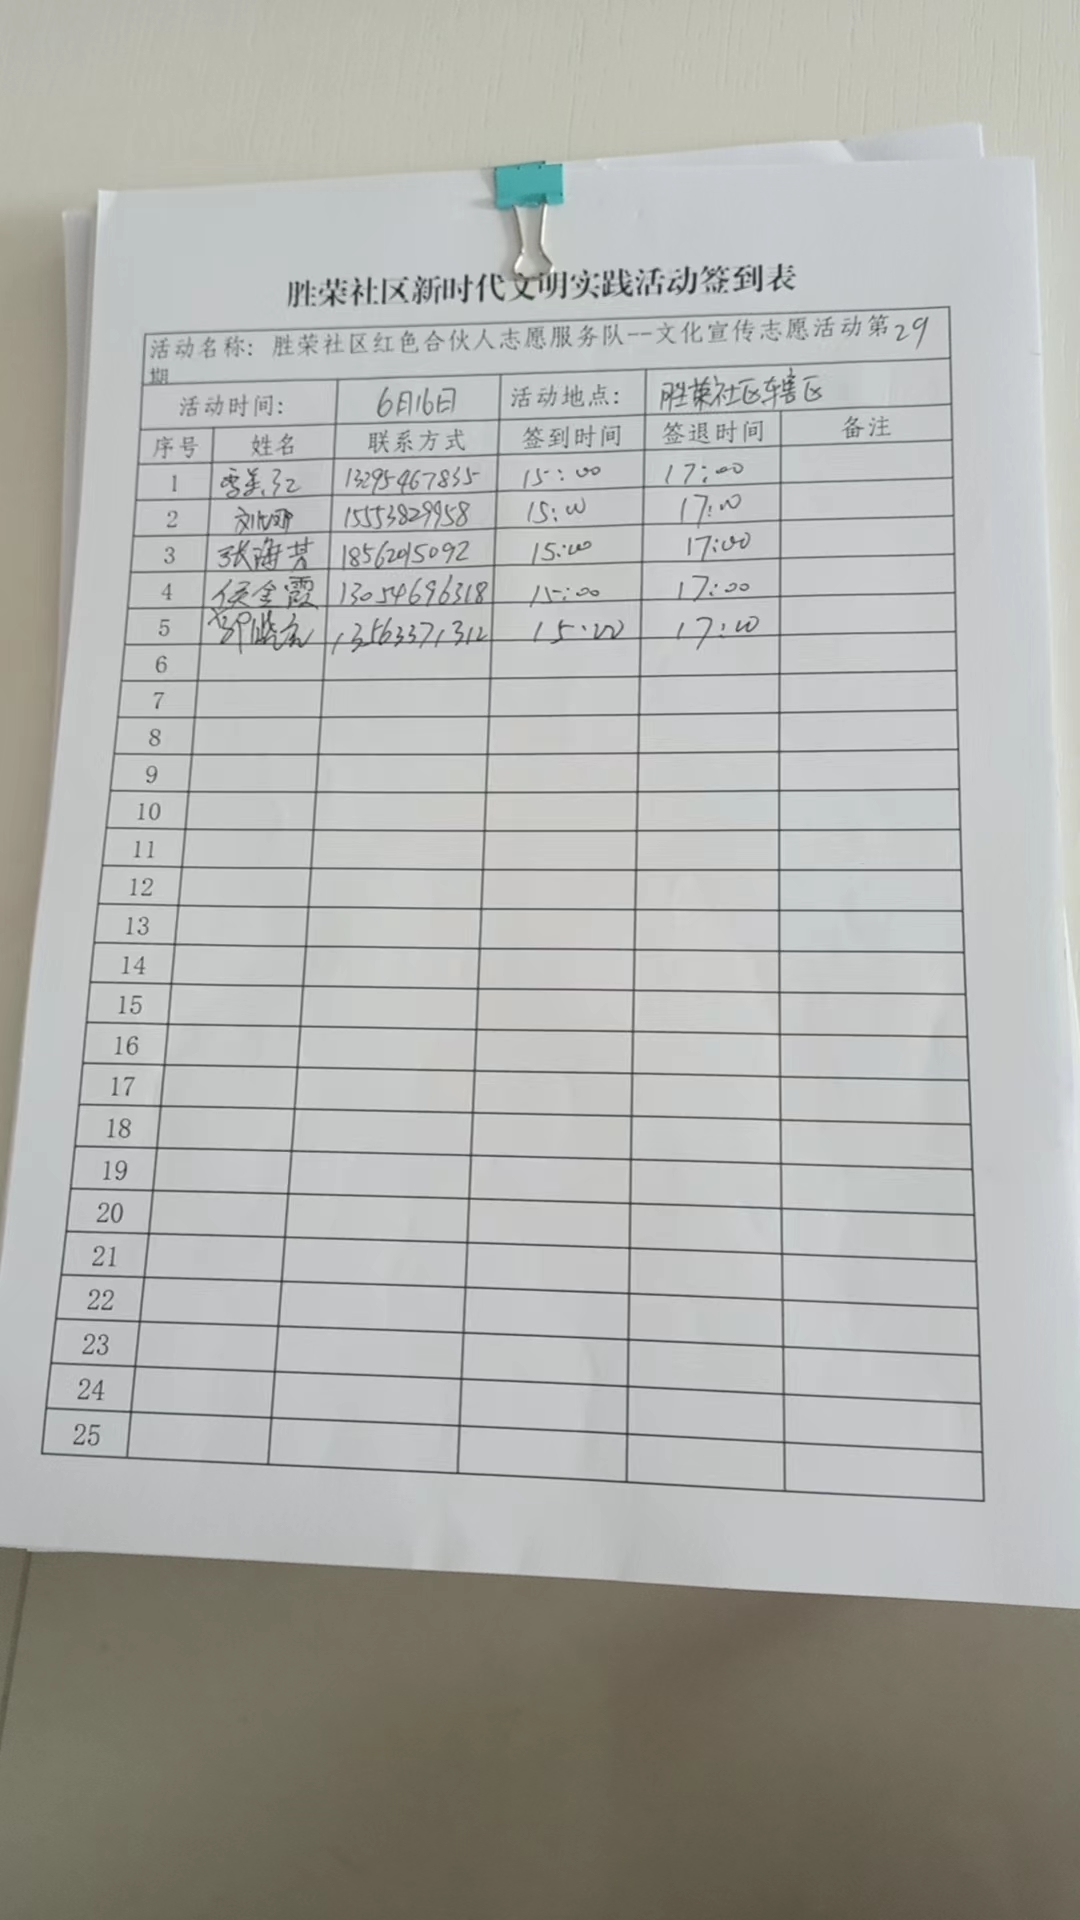 胜荣社区新时代文明实践活动签到表
活动名称：胜荣社区红色合伙人志愿服务队--文化宣传志愿活动第29
期
活动时间： 6月16日 活动地点： 胜荣社区辖区
序号 姓名 联系方式 签到时间 签退时间 备注
1 13295467835 15:00 17:00
2 刘娜 15553829958 15:00 17:00
3 张海芳 18562015092 15:00 17:00
4 侯金霞 13054696318 15:00 17:00
5 13563371312 15:00 17:00
6
7
8
9
10
11
12
13
14
15
16
17
18
19
20
21
22
23
24
25